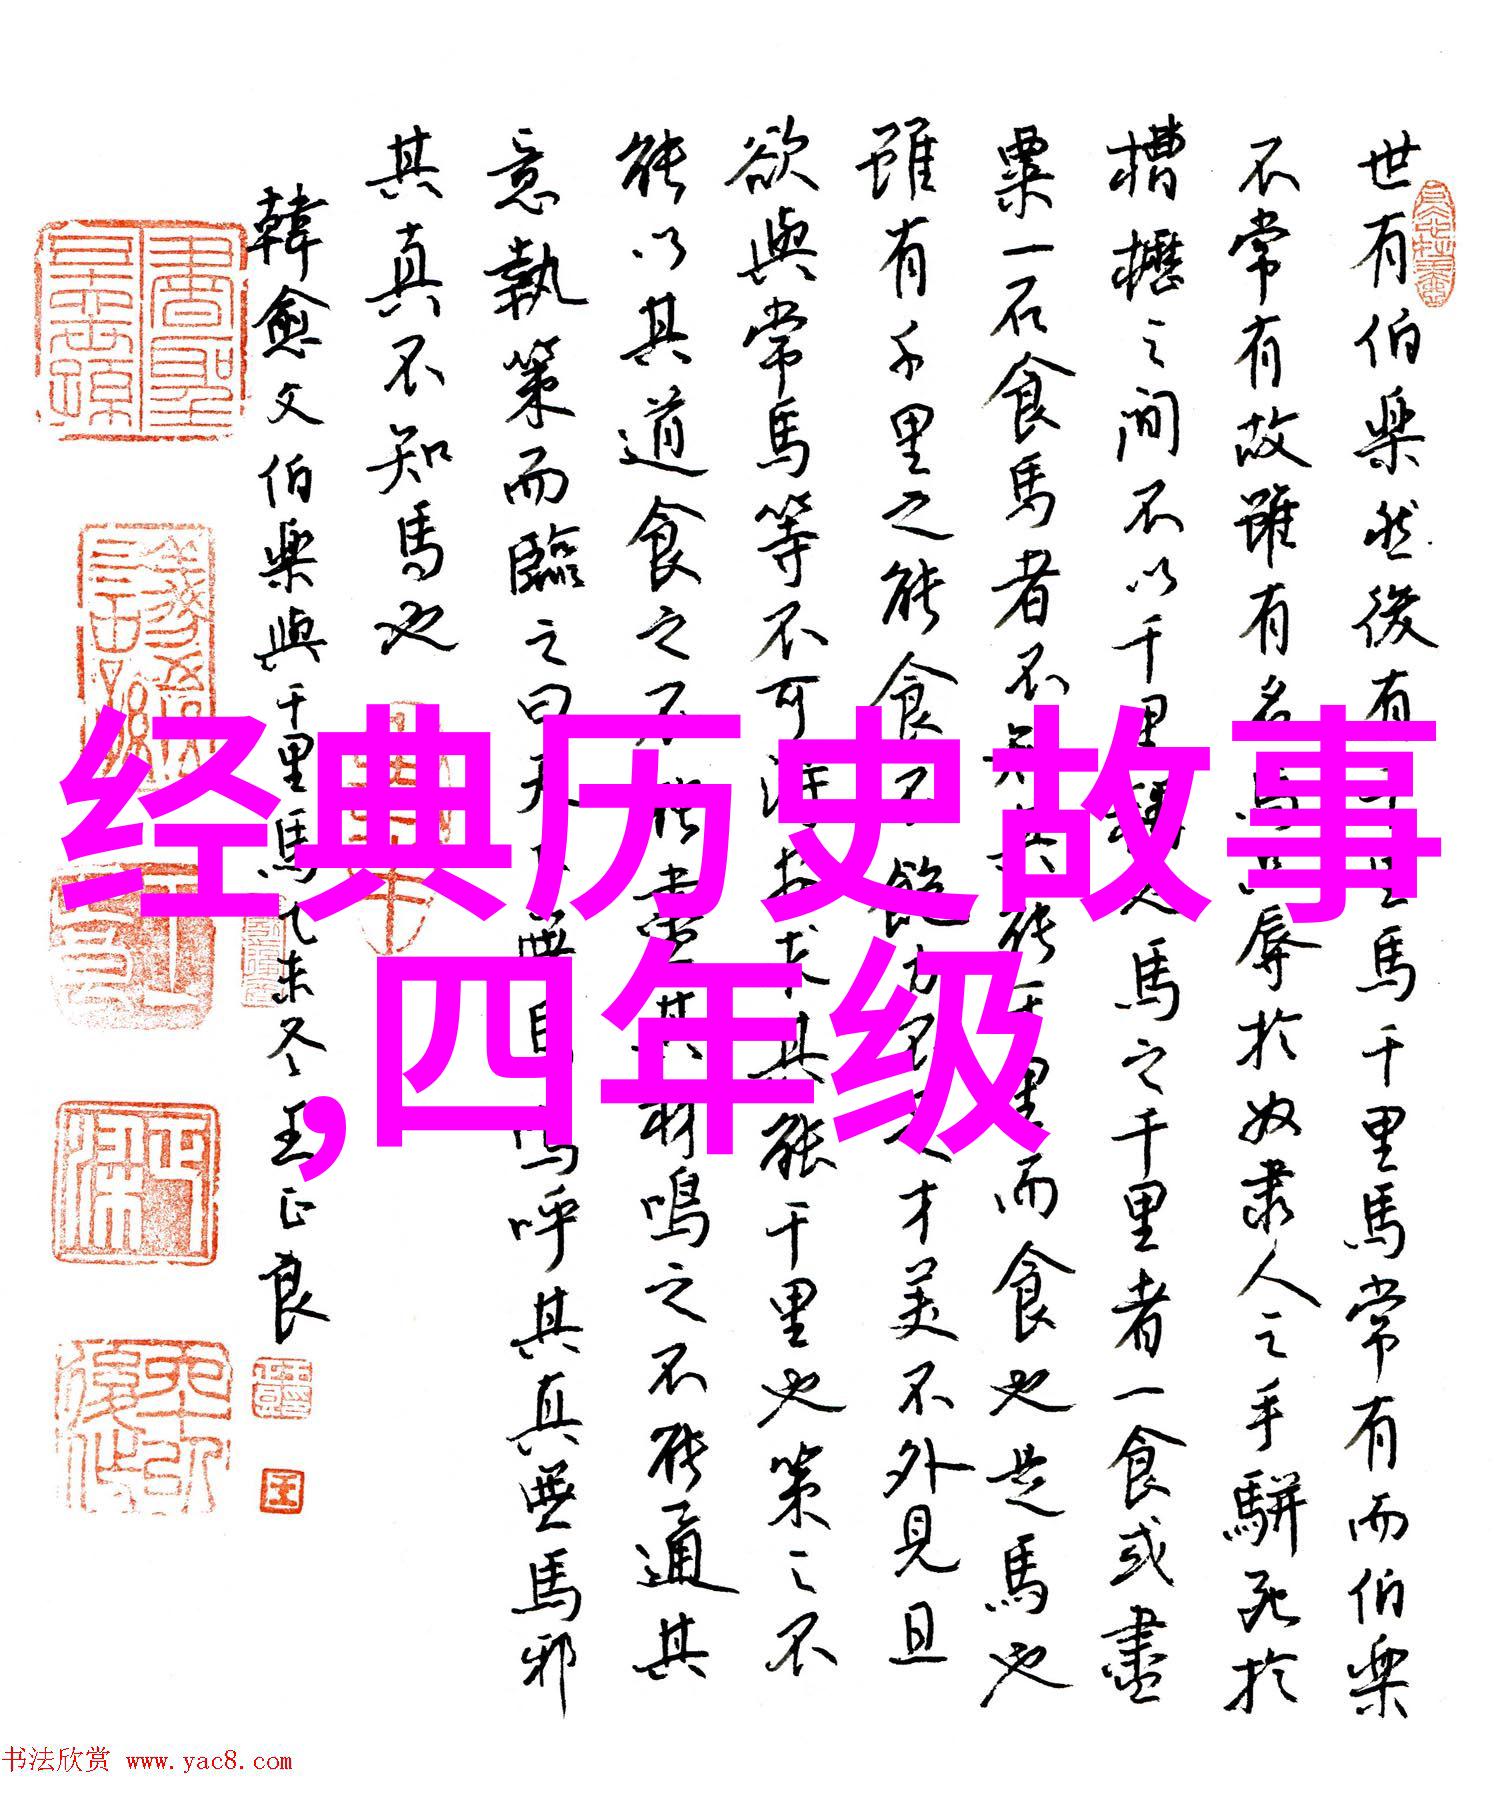 世有伯樂然後有千里馬千里馬常有而伯樂
不常有故雖有名馬只辱於奴隶人之手駢死於
槽櫪之間不以千里稱人馬之千里者一食或盡
粟一石食馬者不知其能千里而食也是馬也
雖有千里之能食不飽力不足才美不外見且
欲與常馬等不可得安求其能千里也策之不
能以其道食之不能盡其材鳴之不能通其
意執策而臨之曰天下無馬嗚呼其真無馬邪
其真不知馬也
韓愈文伯樂與千里馬乙未冬王正良
王
经典历史故事
,四年级
书法欣赏 www.yac8.com